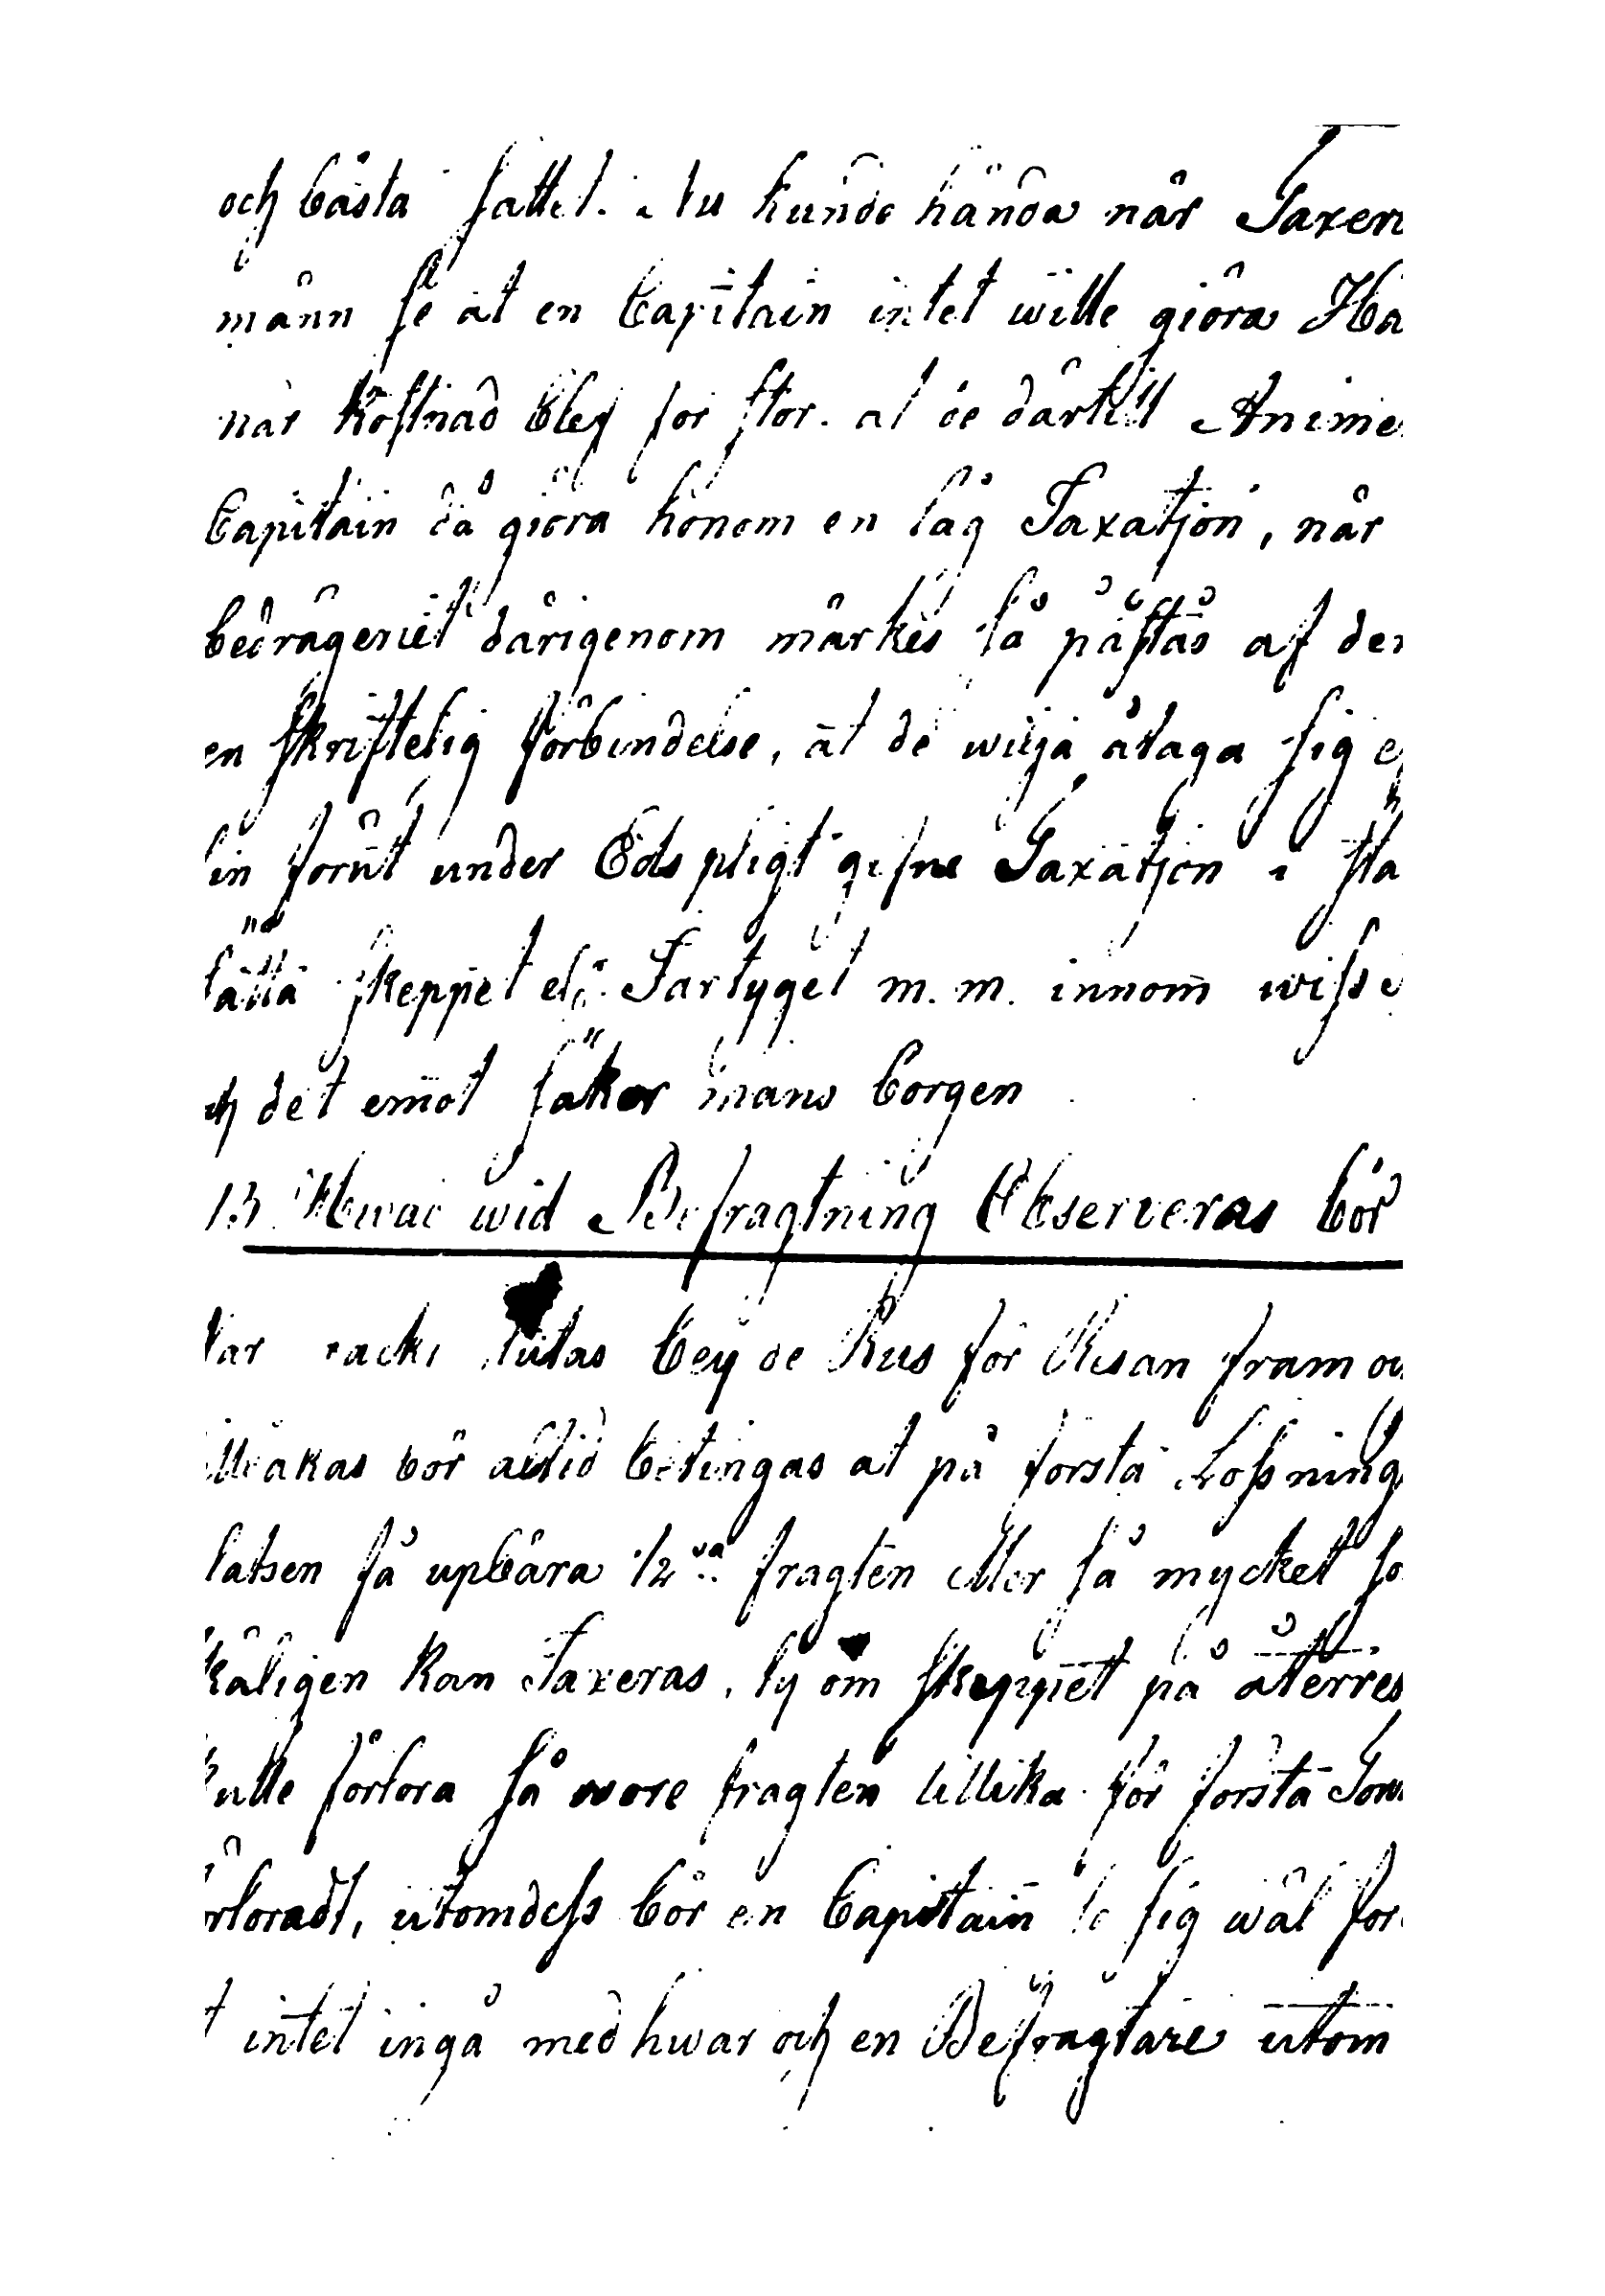 och bästa sättet. Nu kunde hända när Taxer
männ se at en Capitain intet wille giöra Ha
när kostnad blef för stor. at de därtill Anime
Capitain då giöra honom en låg Taxatjon, när
bedrägeriet därigenom märkes så påstås af den
en skriftelig förbindelse, at de wilja åtaga sig e
sin förut under Eds pligt gifne Taxatjon i stå
sätta skeppet elr. Fartyget m. m. innom wisse
ch det emot säker mans borgen
13. Hwad wid Befragtning Observeras bör
lutas beyde Kus för Resan fram oc
bör altid betingas at på första Lossning
latsen få upbära 1/2 va fragten eller så mycket so
käligen kan Taxeras, ty om skeppet på återres
kulle förlora så wore fragten tillika för första Tour
rloradt, utomdess bör en Capitain se sig wäl för
t intet ingå med hwar och en Befragtare utom